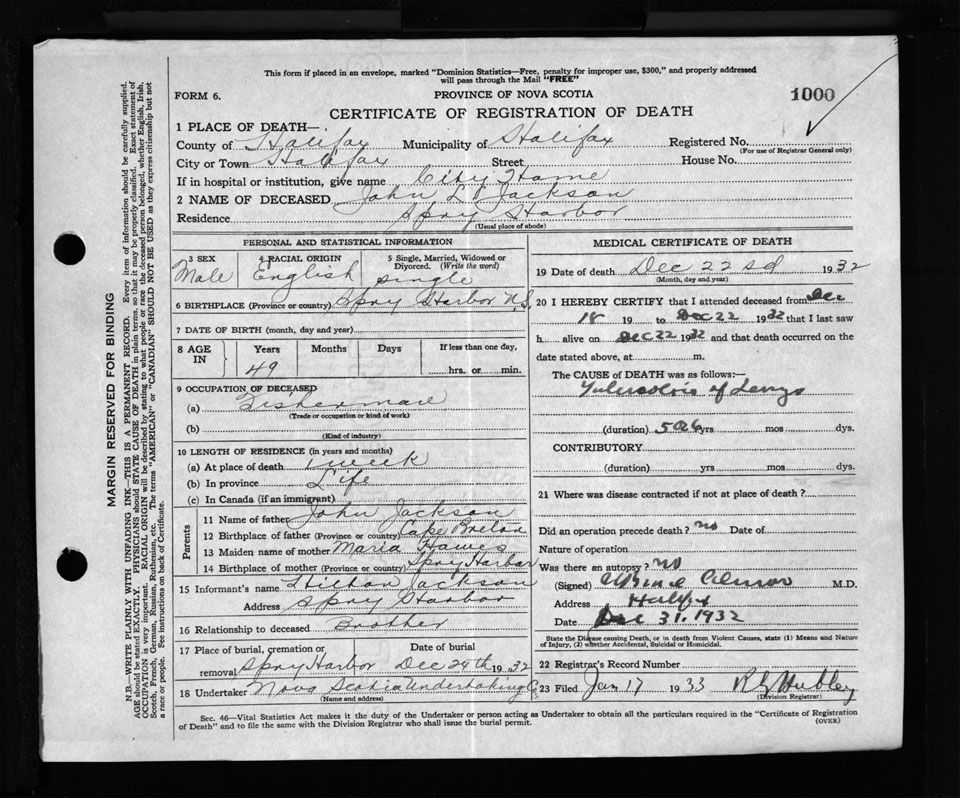 This form if placed in an envelope, marked "Dominion Statistics—Free, penalty for improper use, $300," and properly addressed
will pass through the Mail "FREE"
FORM 6.
PROVINCE OF NOVA SCOTIA
1000
CERTIFICATE OF REGISTRATION OF DEATH
1 PLACE OF DEATH—
County of Halifax Municipality of Halifax Registered No.
(For use of Registrar General only)
City or Town Halifax Street House No.
If in hospital or institution, give name City Home
2 NAME OF DECEASED John L Jackson
Residence Spry Harbor
(Usual place of abode)
PERSONAL AND STATISTICAL INFORMATION
3 SEX 4 RACIAL ORIGIN 5 Single, Married, Widowed or
Divorced. (Write the word)
Male English single
6 BIRTHPLACE (Province or country) Spry Harbor N.S.
7 DATE OF BIRTH (month, day and year)
8 AGE IN Years Months Days If less than one day,
49 hrs. or min.
9 OCCUPATION OF DECEASED
(a) Fisherman
(Trade or occupation or kind of work)
(b)
(Kind of industry)
10 LENGTH OF RESIDENCE (in years and months)
(a) At place of death 1 week
(b) In province Life
(c) In Canada (if an immigrant)
Parents
11 Name of father John Jackson
12 Birthplace of father (Province or country) Cape Breton
13 Maiden name of mother Maria Hawes
14 Birthplace of mother (Province or country) Spry Harbor
15 Informant's name Hilton Jackson
Address Spry Harbor
16 Relationship to deceased Brother
17 Place of burial, cremation or Date of burial
removal Spry Harbor Dec 24th 1932
18 Undertaker Nova Scotia Undertaking Co
(Name and address)
MEDICAL CERTIFICATE OF DEATH
19 Date of death Dec 22nd 1932
(Month, day and year)
20 I HEREBY CERTIFY that I attended deceased from Dec
18 19 to Dec 22 1932 that I last saw
h alive on Dec 22 1932 and that death occurred on the
date stated above, at m.
The CAUSE of DEATH was as follows:—
Tuberculosis of Lungs
(duration) 5 or 6 yrs mos dys.
CONTRIBUTORY
(duration) yrs mos dys.
21 Where was disease contracted if not at place of death?
Did an operation precede death? No Date of
Nature of operation
Was there an autopsy? No
(Signed) M.D.
Address Halifax
Date Dec 31, 1932
State the Disease causing Death, or in death from Violent Causes, state (1) Means and Nature
of Injury, (2) whether Accidental, Suicidal or Homicidal.
22 Registrar's Record Number
23 Filed Jan 17 1933
(Division Registrar)
Sec. 46—Vital Statistics Act makes it the duty of the Undertaker or person acting as Undertaker to obtain all the particulars required in the "Certificate of Registration
of Death" and to file the same with the Division Registrar who shall issue the burial permit.
(OVER)
MARGIN RESERVED FOR BINDING
N.B.—WRITE PLAINLY WITH UNFADING INK—THIS IS A PERMANENT RECORD. Every item of information should be carefully supplied.
AGE should be stated EXACTLY. PHYSICIANS should STATE CAUSE OF DEATH in plain terms, so that it may be properly classified. Exact statement of
OCCUPATION is very important. RACIAL ORIGIN will be described by stating to what people or race the deceased person belonged, whether English, Irish,
Scotch, French, German, Russian, Ruthenian, etc. The terms "AMERICAN" or "CANADIAN" SHOULD NOT BE USED as they express citizenship but not
a race or people. See instructions on back of Certificate.